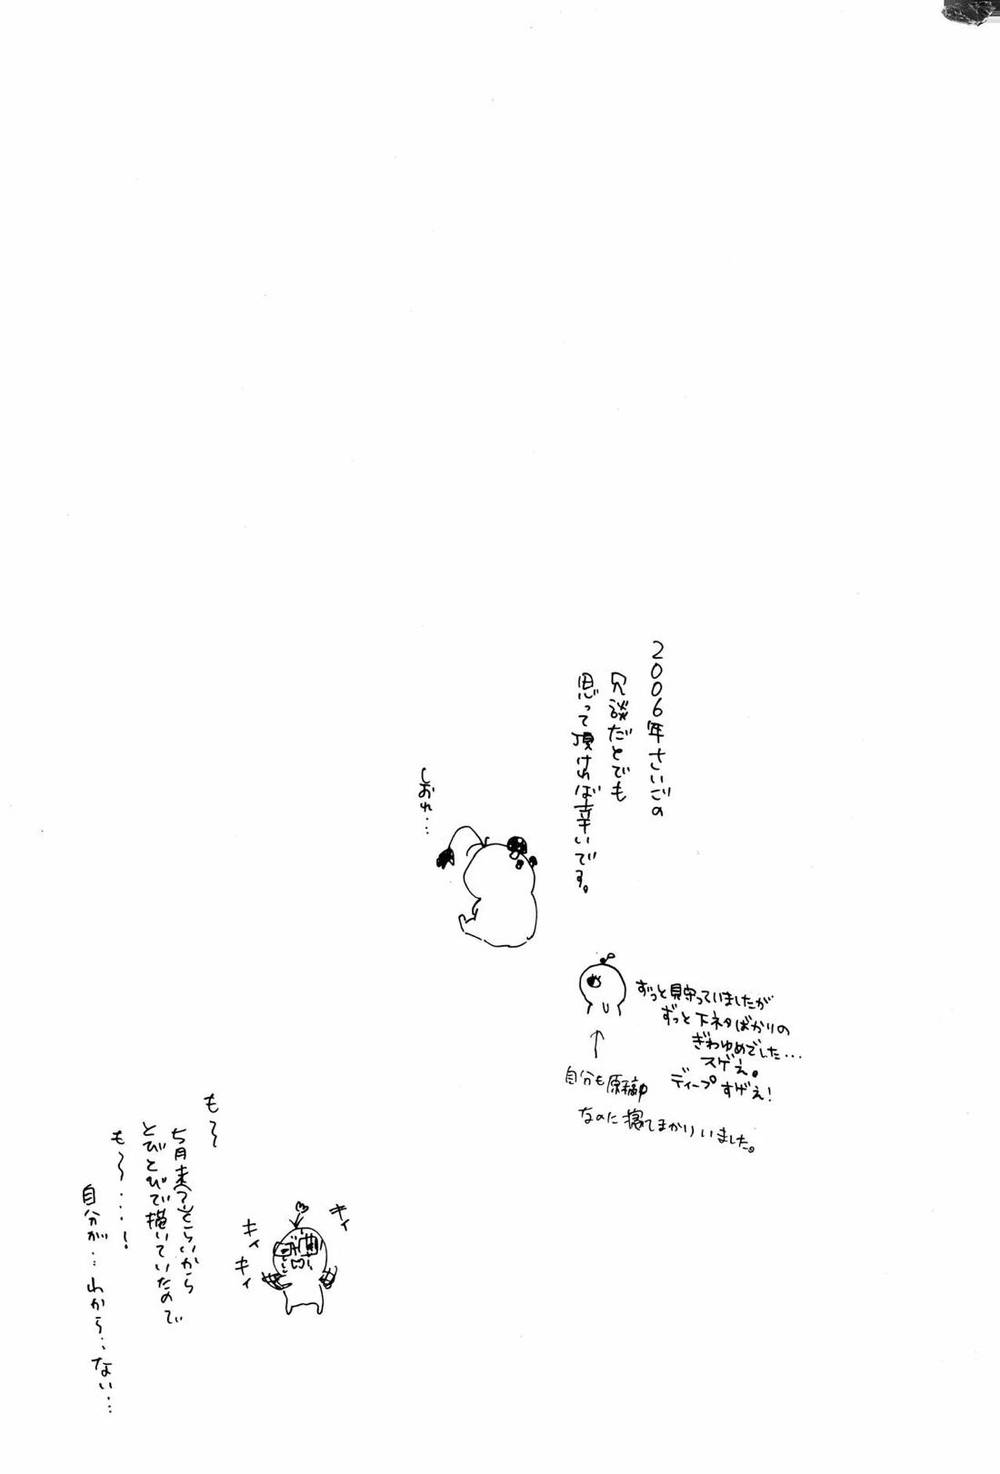 2006年さいごの
冗談だとでも
思って頂ければ幸いです。
しおれ…
ずっと見守っていましたが
ずっと下ネタばかりの
ぎわゆめでした…
スゲえ。
ディープすげえ!
自分も原稿中
なのに寝てまかりいました。
も〜
5月末(?)ぐらいから
とびとびで描いていたので
も〜…!
自分が…わから…ない…
キィ
キィ
キィ